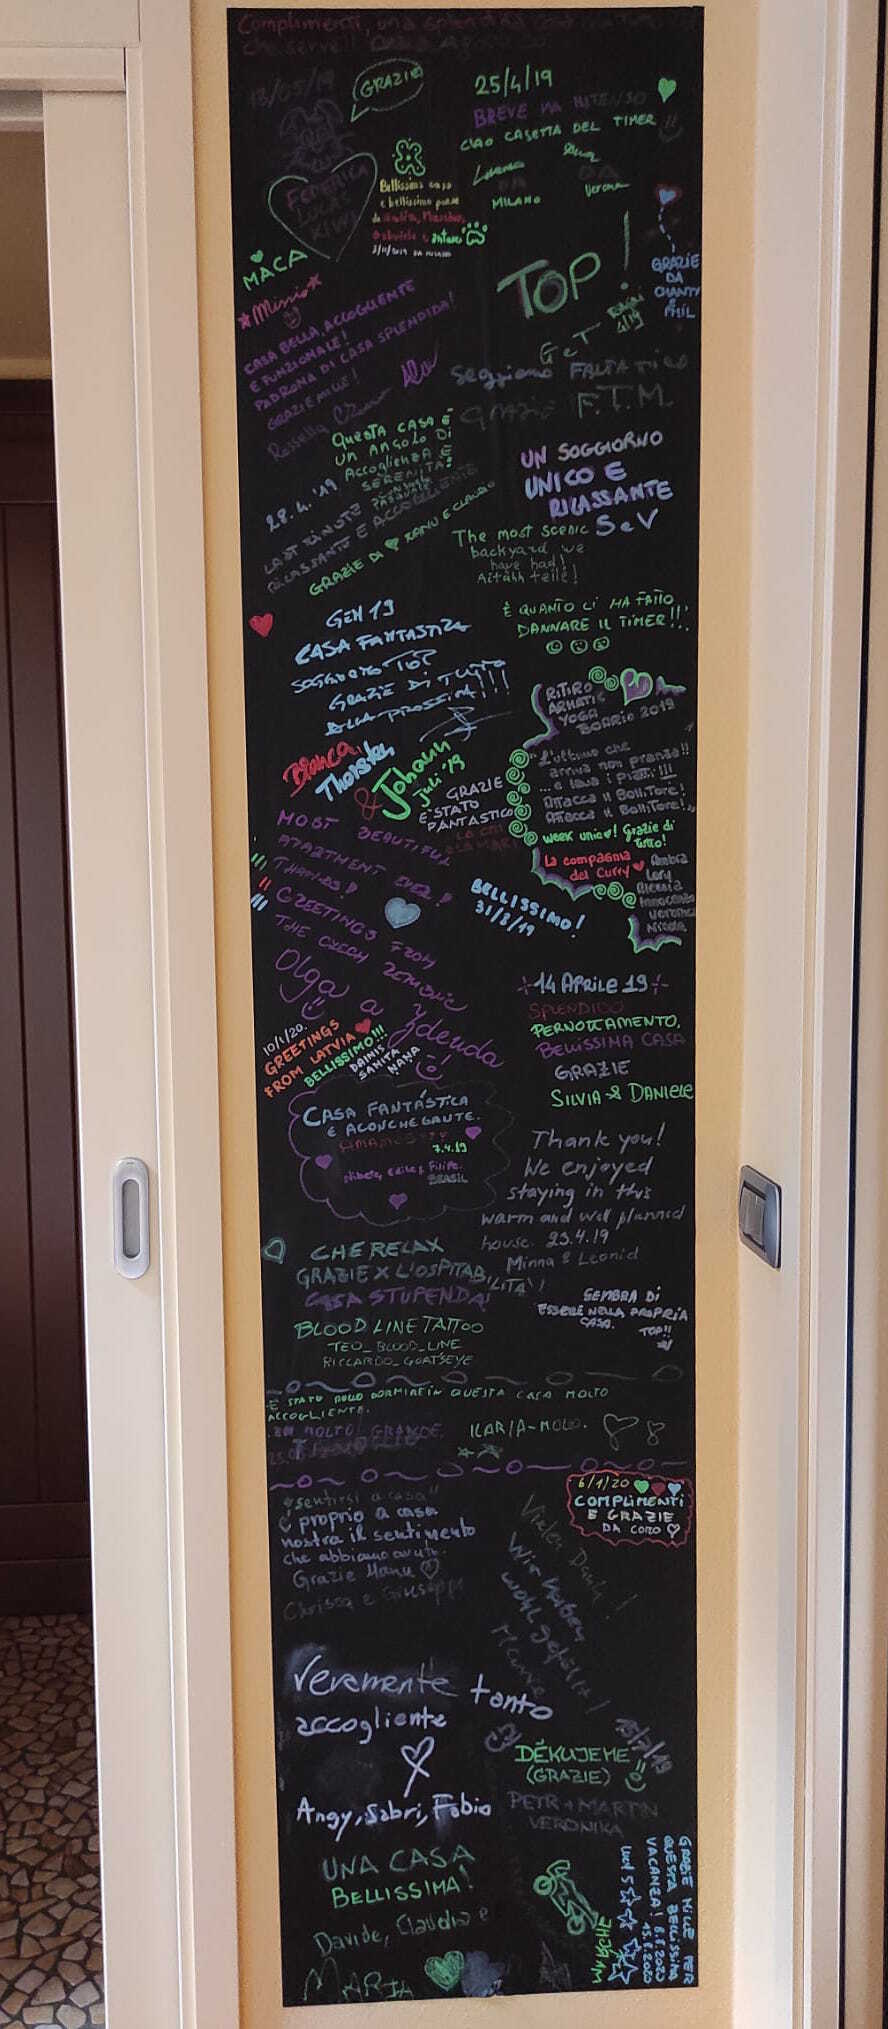 Complimenti, una splendida
che serve!!
13/05/19
GRAZIE
FEDERICA
LUCAS
KIWI
MACA
Bellissima casa
e bellissimo paese
da Giulia, Massimo,
Gabriele e Antares
3/11/2019
25/4/19
BREVE MA INTENSO
CIAO CASETTA DEL TIMER !!
DA
MILANO
DA
Verona
GRAZIE
DA
CHANTY
E
PHIL
TOP!
GeT
4/19
Minio
CASA BELLA, ACCOGLIENTE
E FUNZIONALE!
PADRONA DI CASA SPLENDIDA!
GRAZIE MILLE!
Rossella
Seggiamo FANTATICO
GRAZIE F.T.M.
QUESTA CASA È
UN ANGOLO DI
ACCOGLIENZA E
SERENITÀ!
28.4.'19
LAST MINUTE
RILASSANTE E ACCOGLIENTE
GRAZIE DI ♥ MANU E CLAUDIO
UN SOGGIORNO
UNICO E
RILASSANTE
SeV
The most scenic
backyard we
have had!
Aitähh teile!
È QUANTO CI HA FATTO
DANNARE IL TIMER!!!
GEN 19
CASA FANTASTICA
SOGGIORNO TOP
GRAZIE DI TUTTO
ALLA PROSSIMA!!!
Bianca,
Thorsten
& Johann
Juli '19
GRAZIE
È STATO
FANTASTICO
RITIRO
ARMATIC
YOGA
BOARIO 2019
"L'ultimo che
arriva non pranza!!
... e lava i piatti!!!
Attacca il Bollitore!
Attacca il Bollitore!"
week unico! Grazie di
tutto!
La compagnia
del Curry ♥
Ambra
Lory
Alessia
Innocenzo
Veronica
Nicola
MOST BEAUTIFUL
APARTMENT EVER!
THANKS!
GREETINGS FROM
THE CZECH REPUBLIC
Olga a Zdenda
BELLISSIMO!
31/3/19
14 APRILE 19
SPLENDIDO
PERNOTTAMENTO,
BELLISSIMA CASA
GRAZIE
SILVIA & DANIELE
10/1/20.
GREETINGS
FROM LATVIA ♥
BELLISSIMO!!!
DAINIS
SANITA
NANA
CASA FANTÁSTICA
E ACONCHEGANTE.
AMAMOS
7.4.19
Filipe.
BRASIL
Thank you!
We enjoyed
staying in this
warm and well planned
house. 23.4.19
Minna & Leonid
CHE RELAX
GRAZIE X L'OSPITABILITÀ!
CASA STUPENDA!
BLOOD LINE TATTOO
TEO_BLOOD_LINE
RICCARDO_GOATSEYE
SEMBRA DI
ESSERE NELLA PROPRIA
CASA.
TOP!!
È STATO BELLO DORMIRE IN QUESTA CASA MOLTO
ACCOGLIENTE.
MOLTO GRANDE.
ILARIA-MOLO.
6/1/20
COMPLIMENTI
E GRAZIE
DA CORO
"sentirsi a casa"
è proprio a casa
nostra il sentimento
che abbiamo avuto.
Grazie Manu
Chrissa e Giuseppe
Vielen Dank!
Wir haben
wohl gefühlt!
Veramente tanto
accogliente
Angy, Sabri, Fabio
15/7/19
DĚKUJEME
(GRAZIE)
PETR + MARTIN
VERONIKA
UNA CASA
BELLISSIMA!
Davide, Claudia e
MARIA
GRAZIE MILLE PER
QUESTA BELLISSIMA
VACANZA! 6.8.2020
15.8.2020